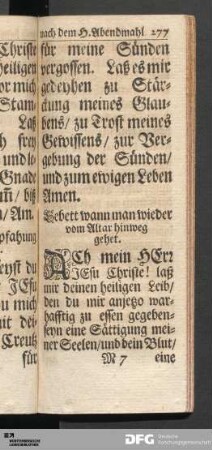 Christe
heiligen
or mich
Stam
Laß
h frey
und le
Gnade
biß
/ Am.
pfahung
eyst du
JEsu
ou mich
it dei
Creutz
für
nach dem H. Abendmahl. 277
für meine Sünden
vergossen. Laß es mir
gedeyhen zu Stär-
ckung meines Glau-
bens / zu Trost meines
Gewissens / zur Ver-
gebung der Sünden /
und zum ewigen Leben
Amen.
Gebett wann man wieder
vom Altar hinweg
gehet.
ACh mein HErr
JEsu Christe! laß
mir deinen heiligen Leib /
den du mir anjetzo war-
hafftig zu essen gegeben /
seyn eine Sättigung mei-
ner Seelen / und dein Blut /
M 7 eine
DFG
Deutsche
Forschungsgemeinschaft